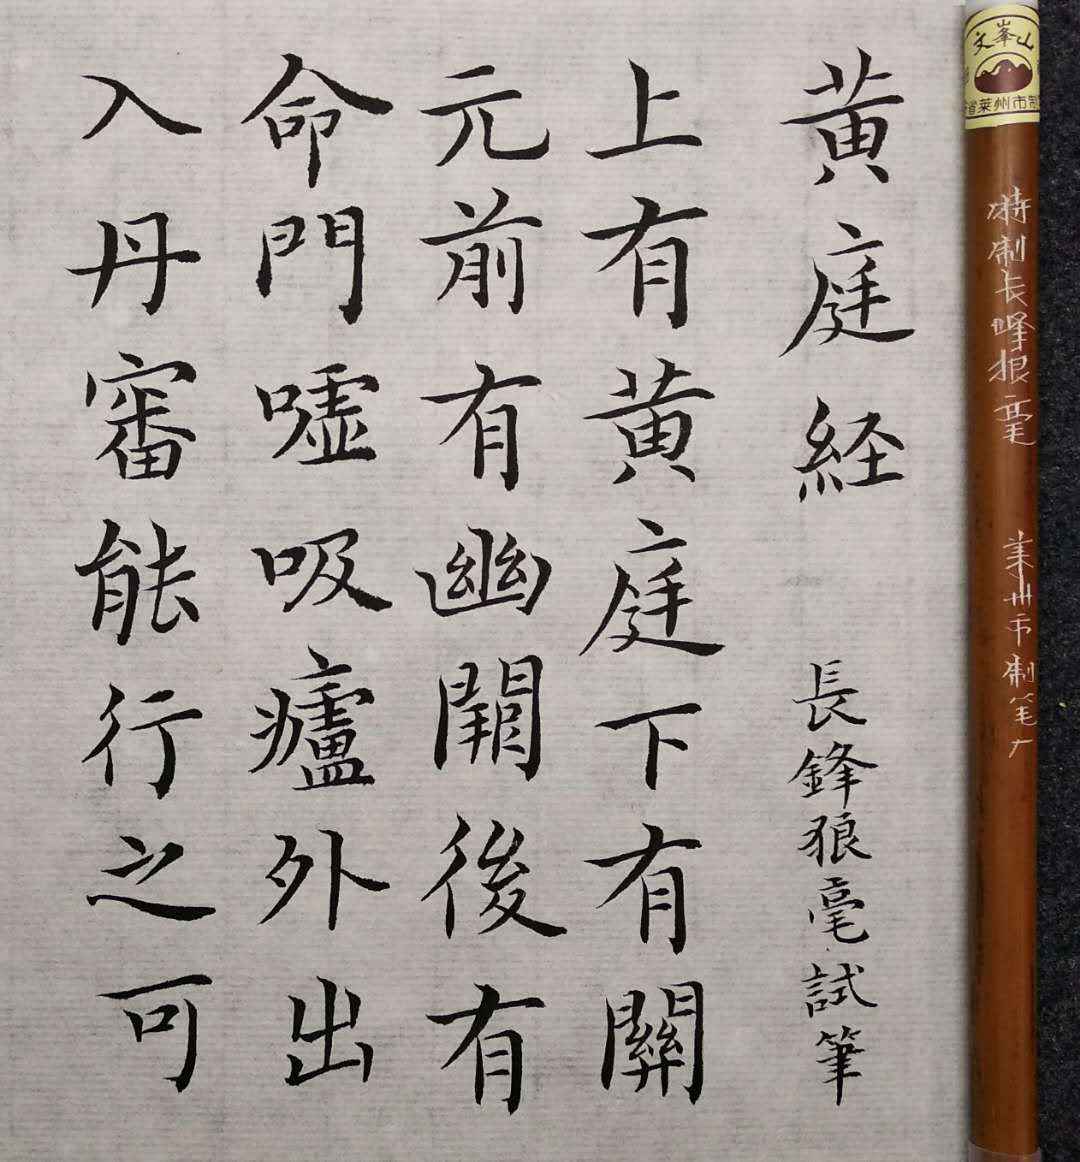 黄庭経 長鋒狼毫試筆
上有黄庭下有關
元前有幽闕後有
命門噓吸廬外出
入丹審能行之可
文峯山
省莱州市制
特制长峰狼毫 莱州市制笔厂